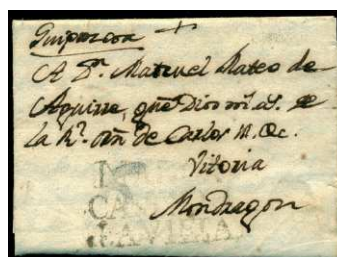 Guipuzcoa
A Dn. Manuel Mateo de
Aguirre, que Dios
la Rl. orn de Carlos III. &c.
Vitoria
Mondragon
CA
LAVIEJA